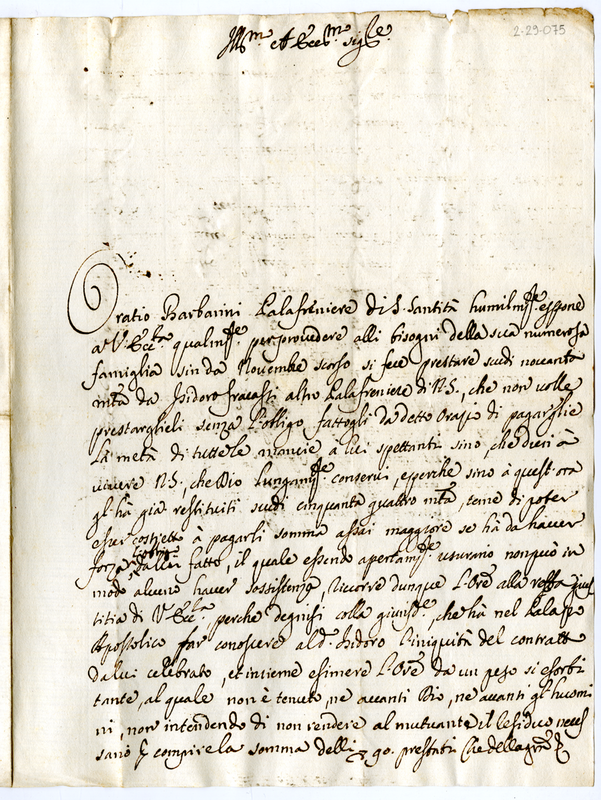 2-29-075
Ill.mo et Ecc.mo Sig.re
Oratio Barbarini Palafreniere di S. Santità humilm.te espone
a V. Ecc.za qualm.te per provedere alli bisogni della sua numerosa
famiglia sin da Novembre scorso si fece prestare scudi novanta
m.ta da Isidoro Fracasti altro Palafreniere di N.S., che non volle
prestarglieli senza l'obligo fattogli da detto Orazio di pagarglie
la metà di tutte le mancie a lui spettanti sino, che durerà
vivere N.S. che Dio lungam.te conservi, e perche sino à quest'ora
gl'hà già restituiti scudi cinquanta quattro m.ta, teme di poter
esser costretto à pagarli somma assai maggiore se hà da haver
forza tal fatto, il quale essendo apertam.te usurario non può in
modo alcuno haver sossistenza, Ricorre dunque l'Ore alla retta gius
titia di V. Ecc.za perche degnisi colla giurisd.e, che hà nel Palazzo
Apostolico far conoscere al d.o Isidoro l'iniquità del contratto
da lui celebrato, et insieme esimere l'Ore da un peso si esorbi
tante, al quale non è tenuto, ne avanti Dio, ne avanti gl'huomi
ni, non intendendo di non rendere al mutuante il residuo neces
sario p compire la somma delli 90. prestati Che della gra